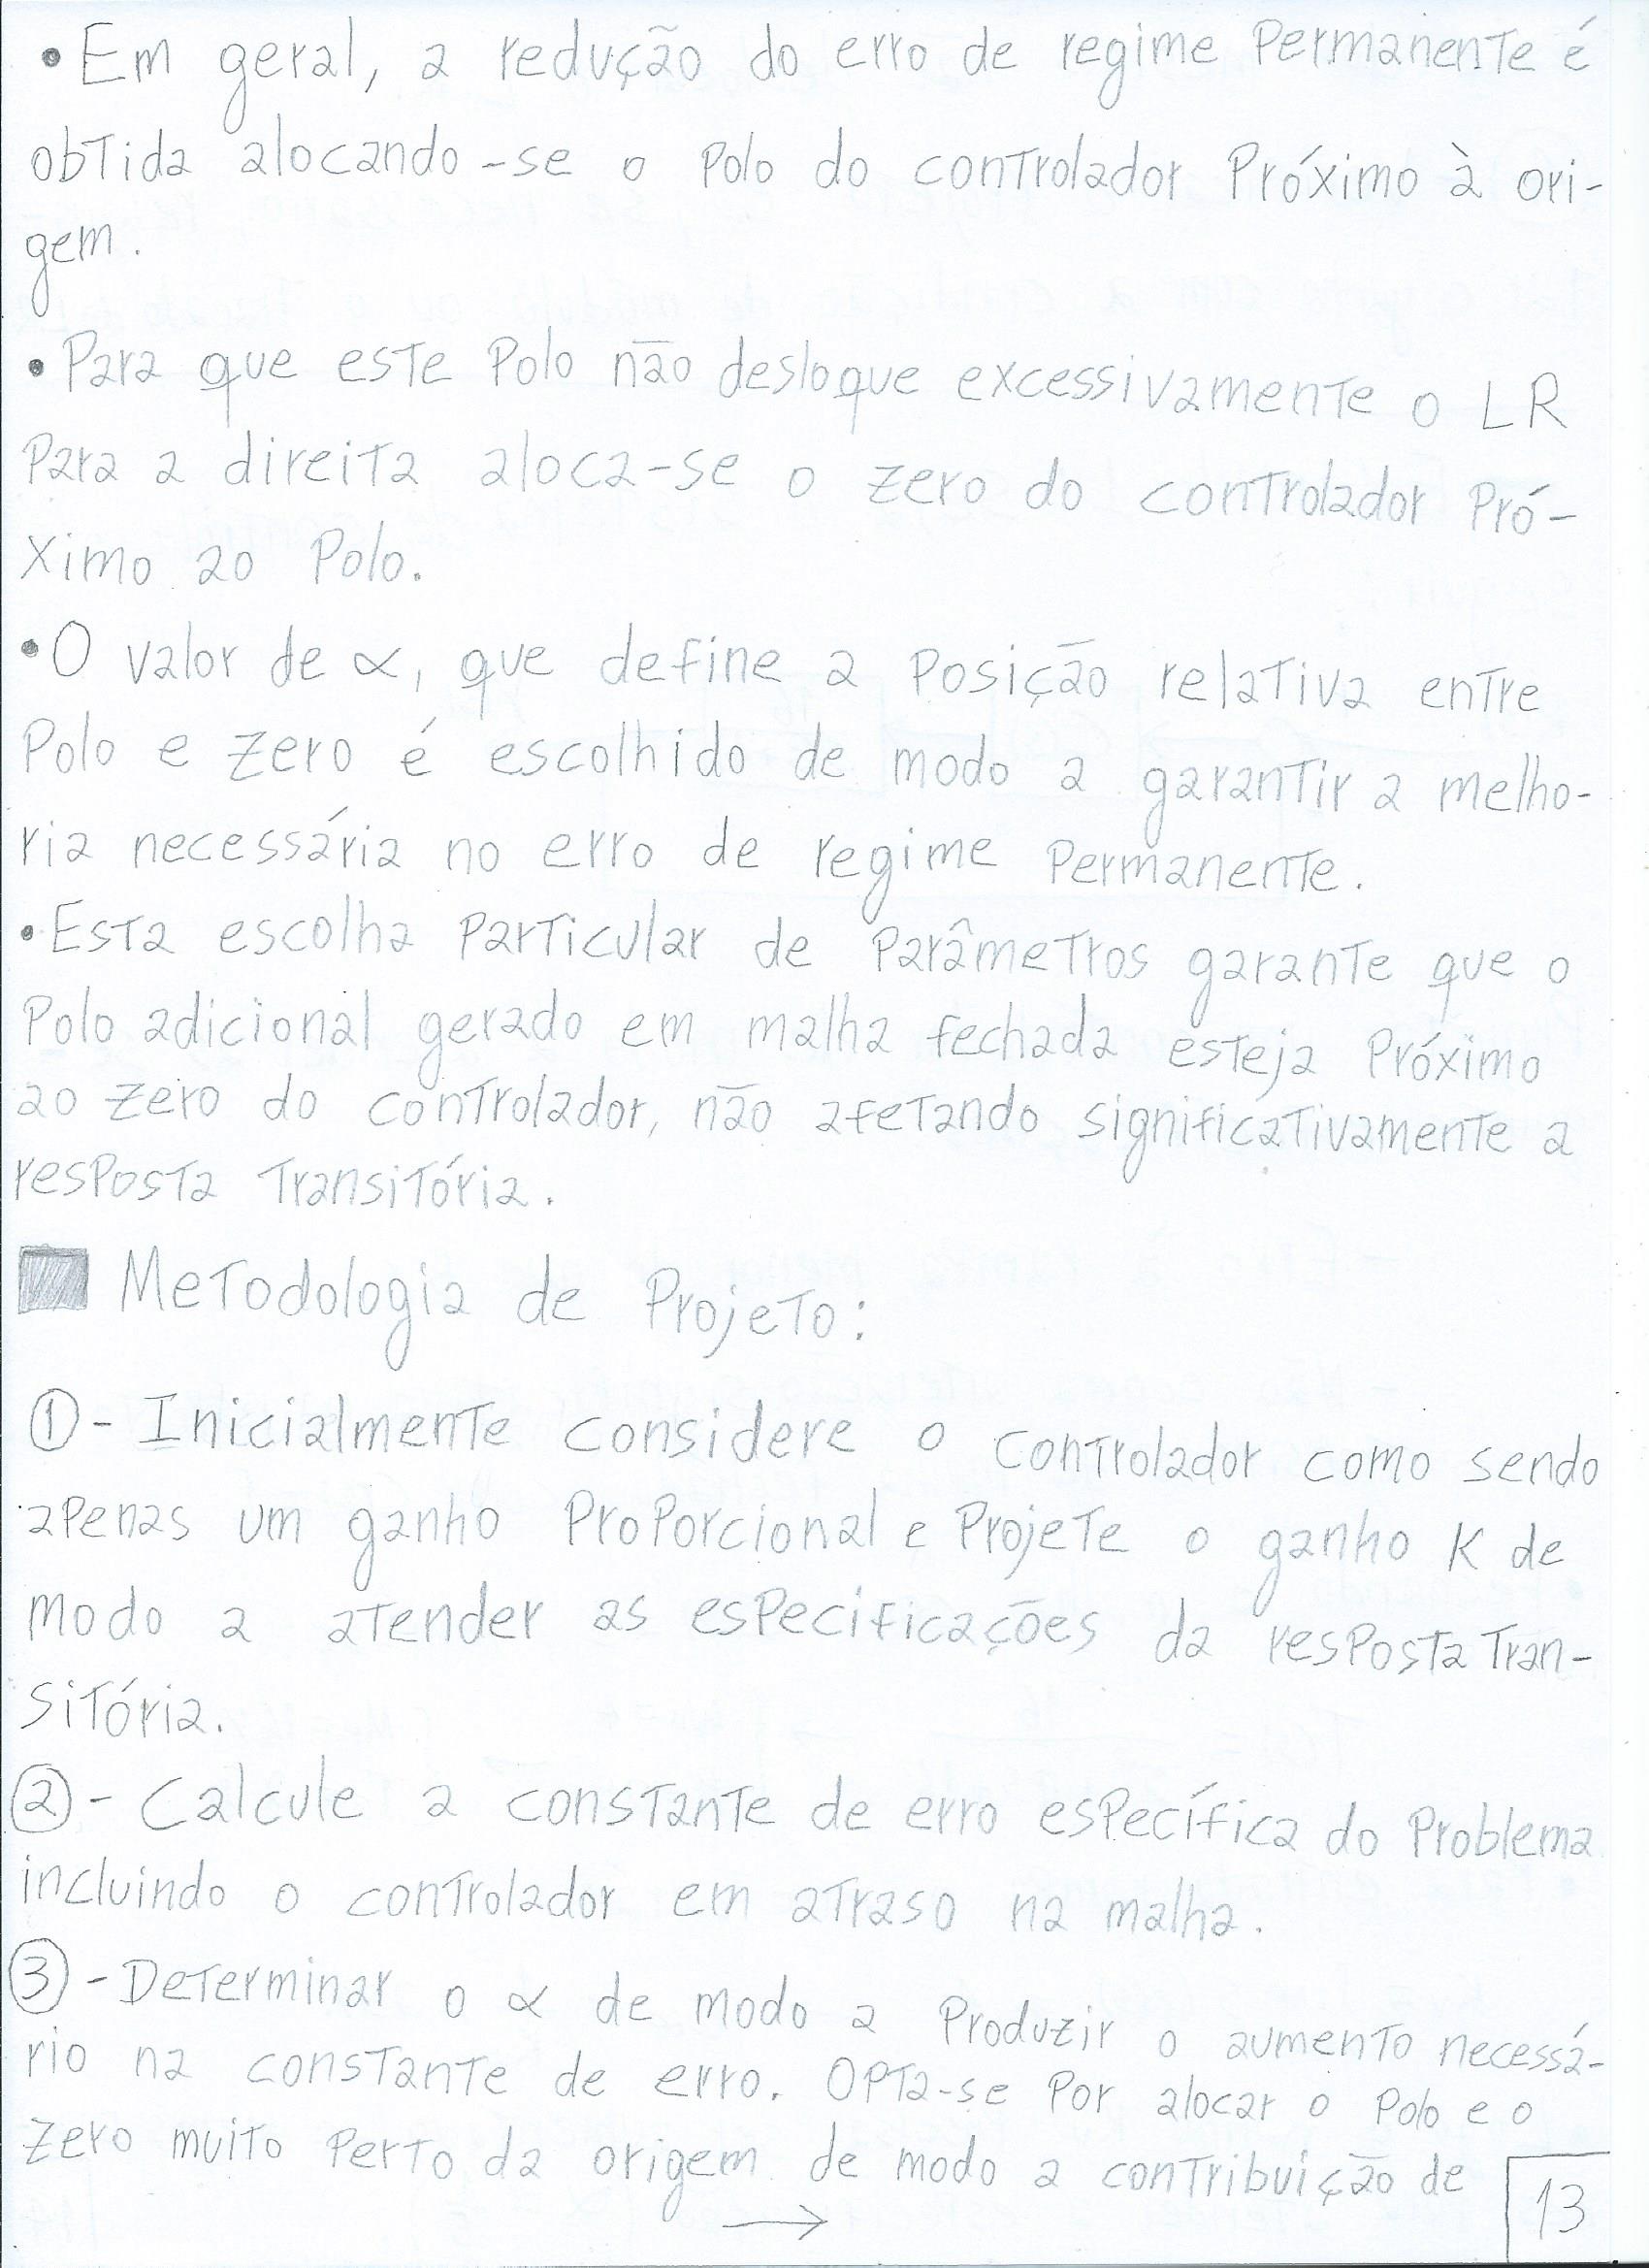 • Em geral, a redução do erro de regime Permanente é
obtida alocando-se o Polo do controlador Próximo à ori-
gem.
• Para que este Polo não desloque excessivamente o LR
Para a direita aloca-se o zero do controlador Pró-
ximo ao Polo.
• O valor de α, que define a Posição relativa entre
Polo e zero é escolhido de modo a garantir a melho-
ria necessária no erro de regime Permanente.
• Esta escolha Particular de Parâmetros garante que o
Polo adicional gerado em malha fechada esteja Próximo
ao zero do controlador, não afetando significativamente a
resposta Transitória.
Metodologia de Projeto:
① - Inicialmente considere o controlador como sendo
apenas um ganho Proporcional e Projete o ganho K de
modo a atender as especificações da resposta Tran-
sitória.
② - Calcule a constante de erro específica do Problema
incluindo o controlador em atraso na malha.
③ - Determinar o α de modo a Produzir o aumento necessá-
rio na constante de erro. Opta-se Por alocar o Polo e o
zero muito Perto da origem de modo a contribuição de
→
13